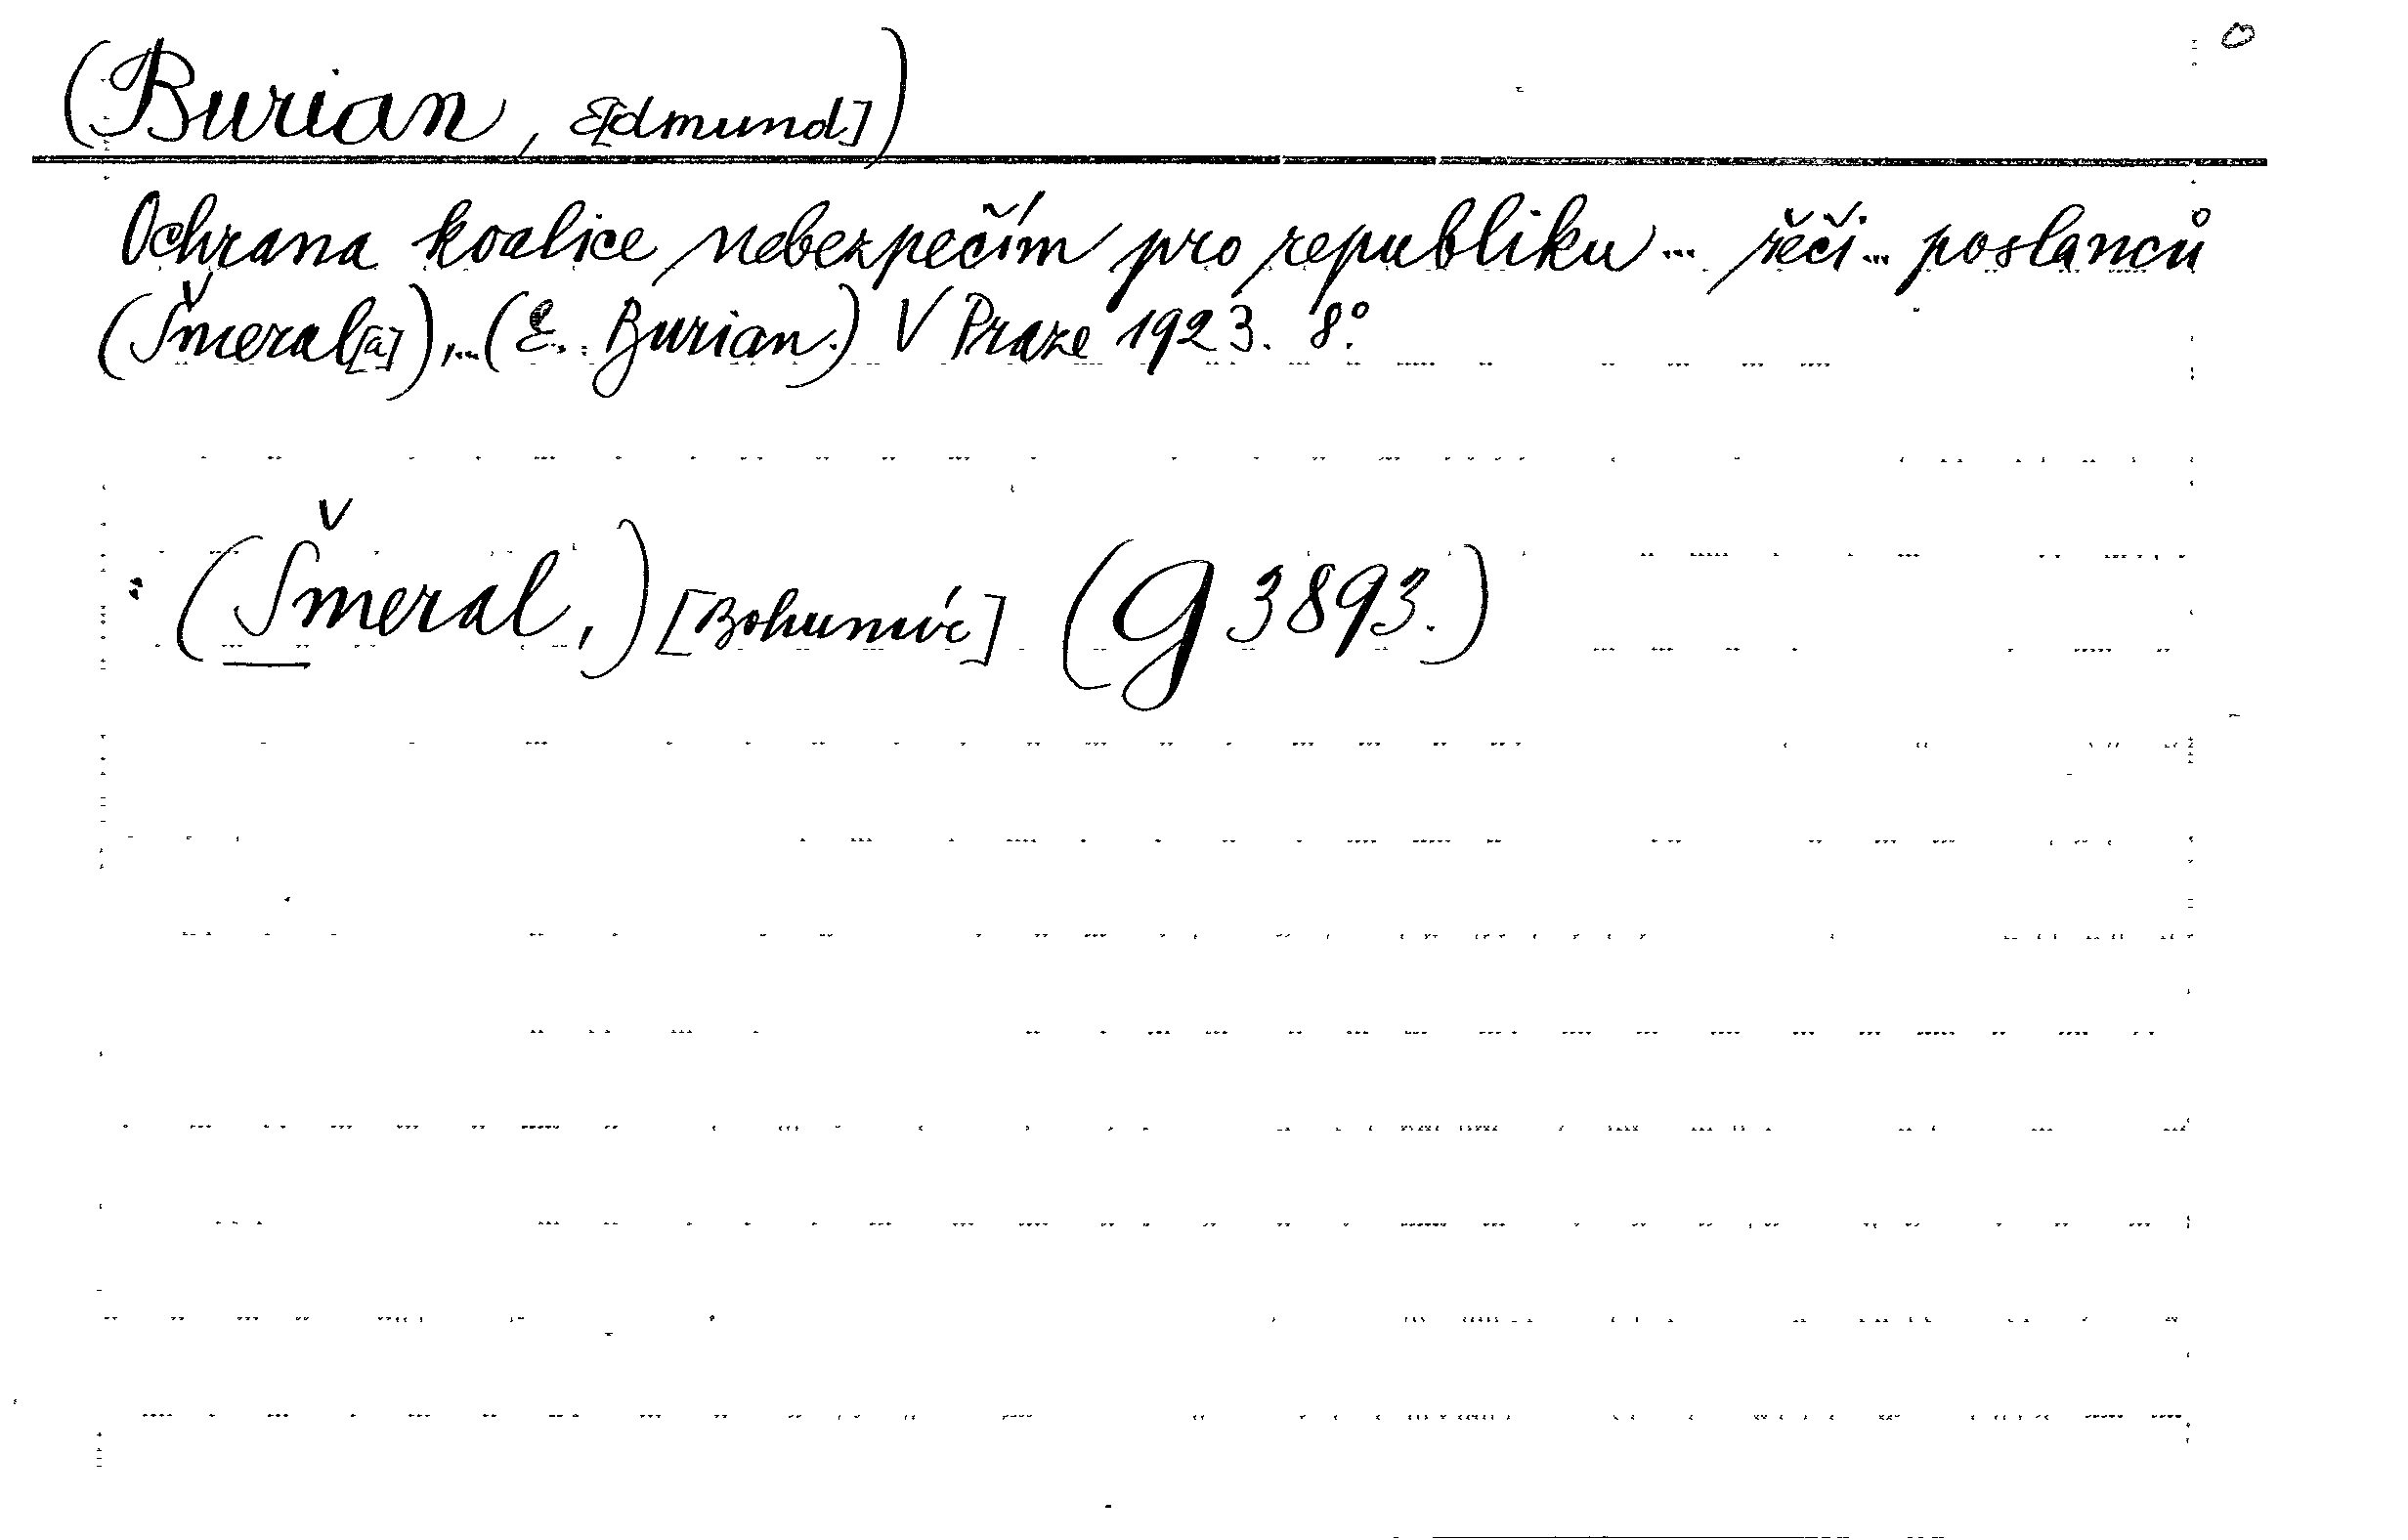 (Burian, E[dmund])
Ochrana koalice nebezpečím pro republiku ... řeči ... poslanců
(Šmeral[a]),...(E. Burian.) V Praze 1923. 8°.
: (Šmeral,) [Bohumír] (G 3893.)